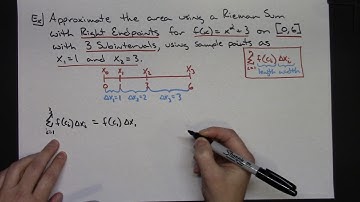 Ex) Approximate the area using a Rieman Sum
with Right Endpoints for f(x)=x²+3 on [0,6]
with 3 Subintervals, using Sample points as
x₁=1 and x₂=3.
x₀ x₁ x₂ x₃
0 1 3 6
Δx₁=1 Δx₂=2 Δx₃=3
3
Σ f(cᵢ) Δxᵢ
i=1
length width
3
Σ f(cᵢ) Δxᵢ = f(c₁) Δx₁
i=1